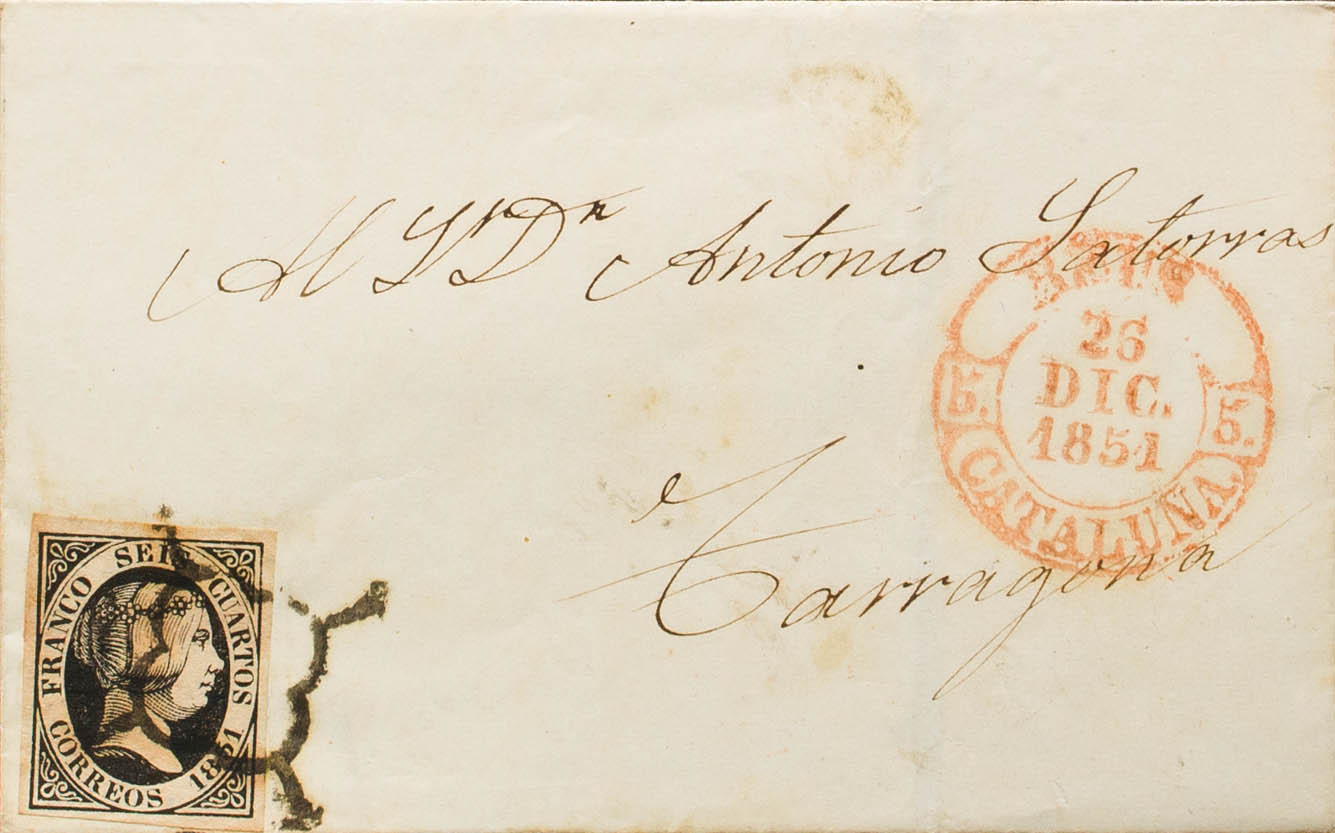 Al Sr Dn Antonio Satorras
26
DIC.
1851
5. 5.
CATALUÑA.
Tarragona
FRANCO SEIS CUARTOS
CORREOS 1851